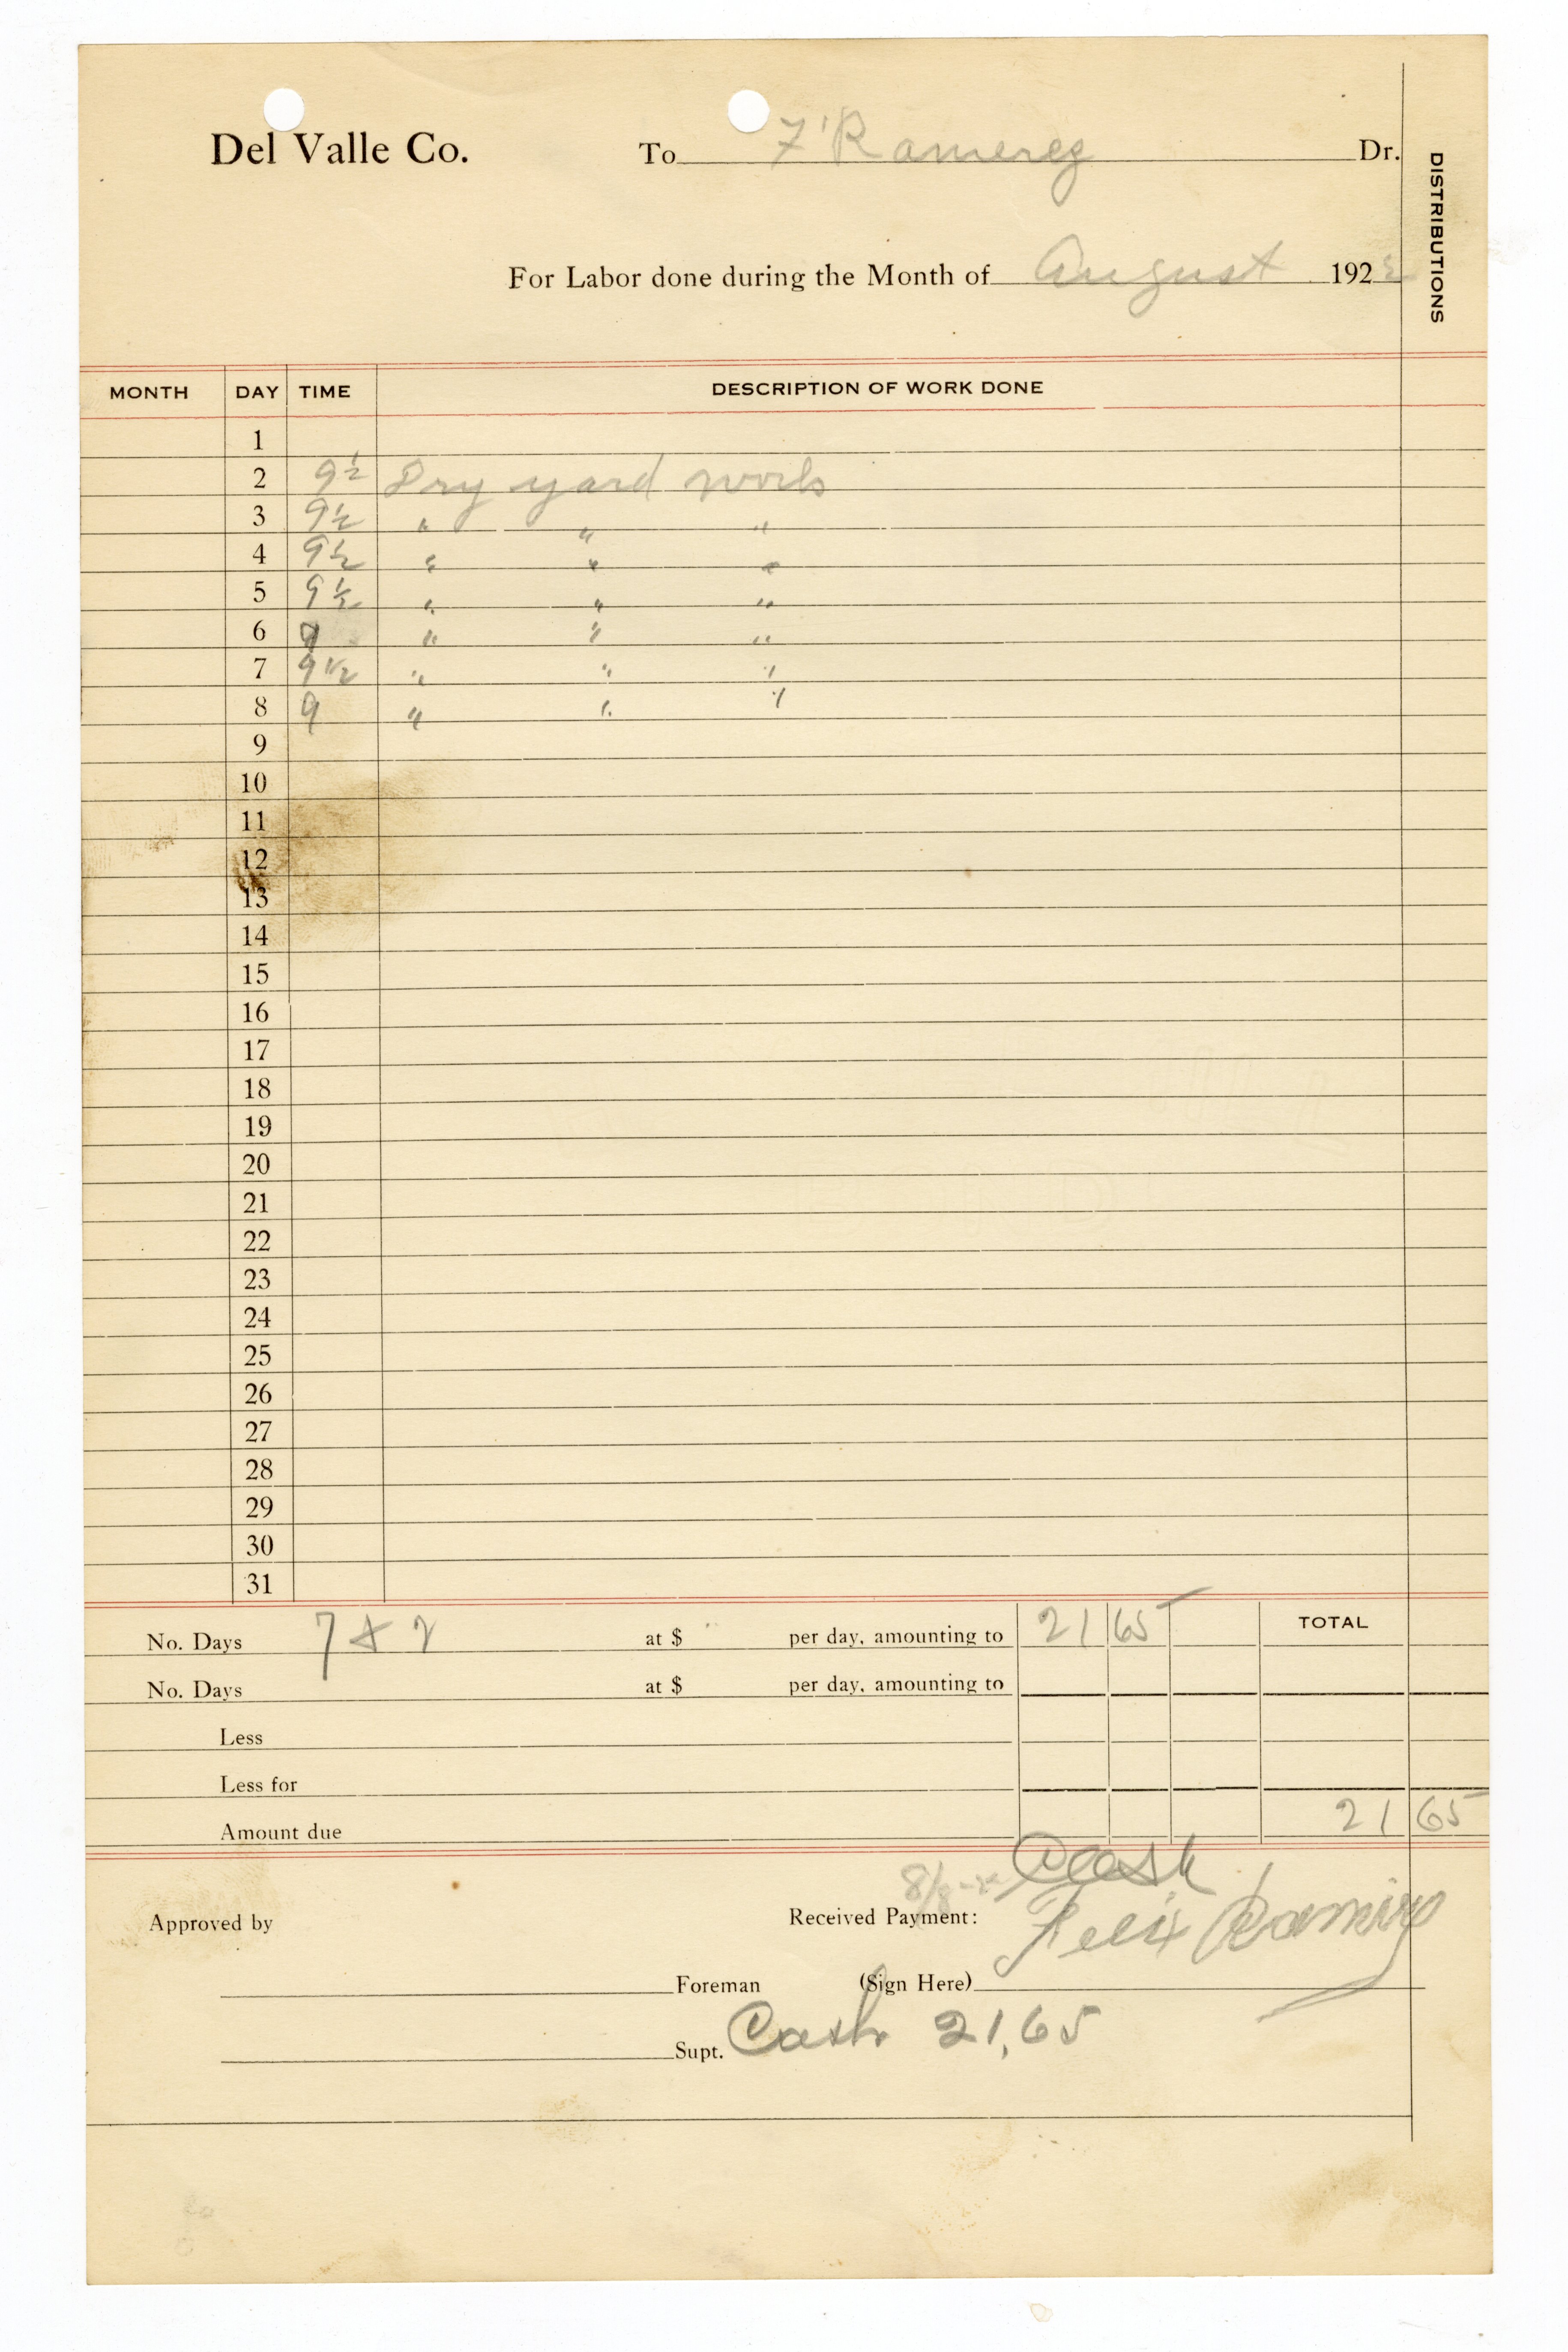 Del Valle Co. To F'Ramereg Dr.
DISTRIBUTIONS
For Labor done during the Month of August 192
MONTH DAY TIME DESCRIPTION OF WORK DONE
1
2 9½ Dry yard work
3 9½ " " "
4 9½ " " "
5 9½ " " "
6 9 " " "
7 9 1/2 " " "
8 9 " " "
9
10
11
12
13
14
15
16
17
18
19
20
21
22
23
24
25
26
27
28
29
30
31
No. Days 7 at $ per day, amounting to 21 65 TOTAL
No. Days at $ per day, amounting to
Less
Less for
Amount due 21 65
Cash
Approved by Received Payment: Felix
Foreman (Sign Here)
Supt. Cash 21,65